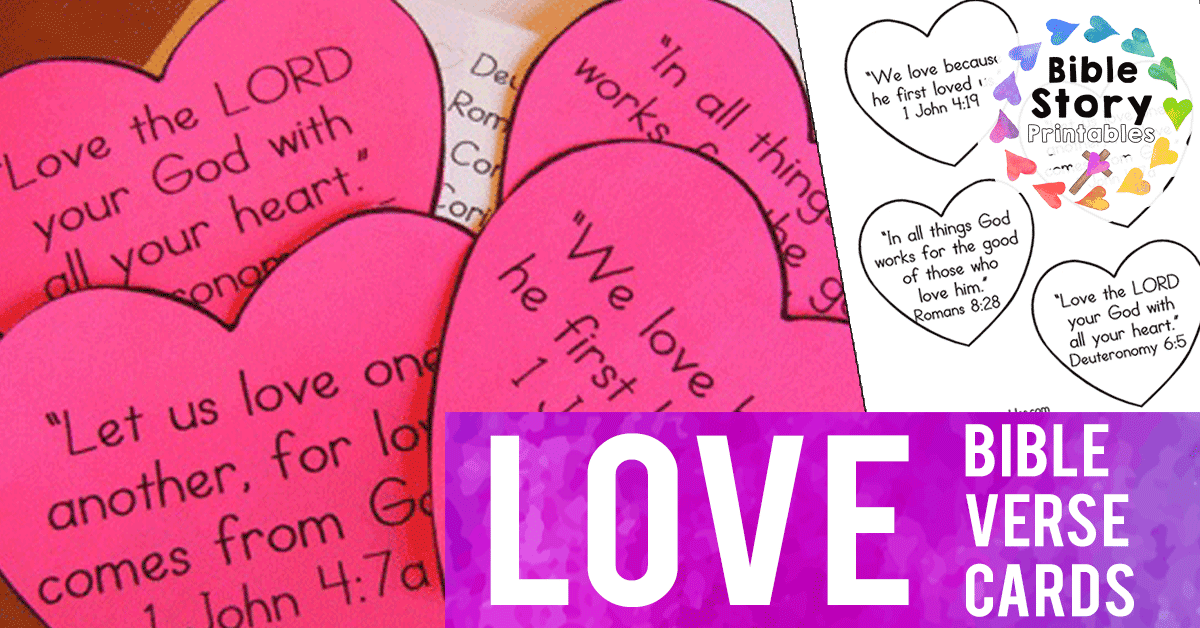 "Love the LORD
your God with
all your heart."
"In all things
works
"Let us love one
another, for
comes from
1 John 4:7a
"We love
he first
1
"We love because
he first loved
1 John 4:19
Bible
Story
Printables
"In all things God
works for the good
of those who
love him."
Romans 8:28
"Love the LORD
your God with
all your heart."
Deuteronomy 6:5
LOVE
BIBLE
VERSE
CARDS